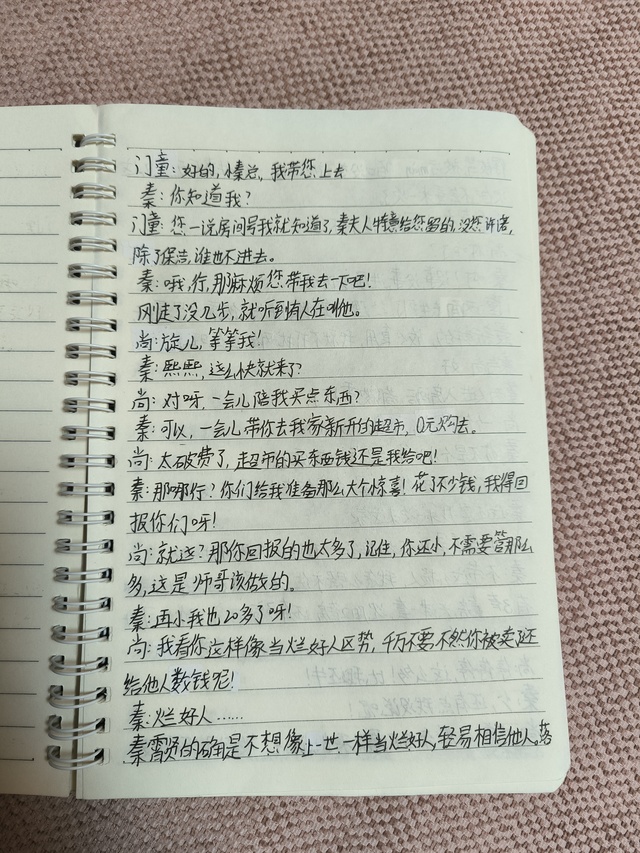 门童：好的，秦总，我带您上去
秦：你知道我？
门童：您一说房间号我就知道了，秦夫人特意给您留的，没您许诺，
除了保洁，谁也不进去。
秦：哦，行，那麻烦您带我去一下吧！
刚走了没几步，就听到有人在叫他。
尚：旋儿，等等我！
秦：熙熙，这么快就来了？
尚：对呀，一会儿陪我买点东西？
秦：可以，一会儿带你去我家新开的超市，0元购去。
尚：太破费了，超市的买东西钱还是我给吧！
秦：那哪行？你们给我准备那么大个惊喜！花了不少钱，我得回
报你们呀！
尚：就这？那你回报的也太多了，记住，你还小，不需要管那么
多，这是师哥该做的。
秦：再小我也20多了呀！
尚：我看你这样像当烂好人区势，千万不要，不然你被卖了还
给他人数钱呢！
秦：烂好人……
秦霄贤的确是不想像上一世一样当烂好人，轻易相信他人。落